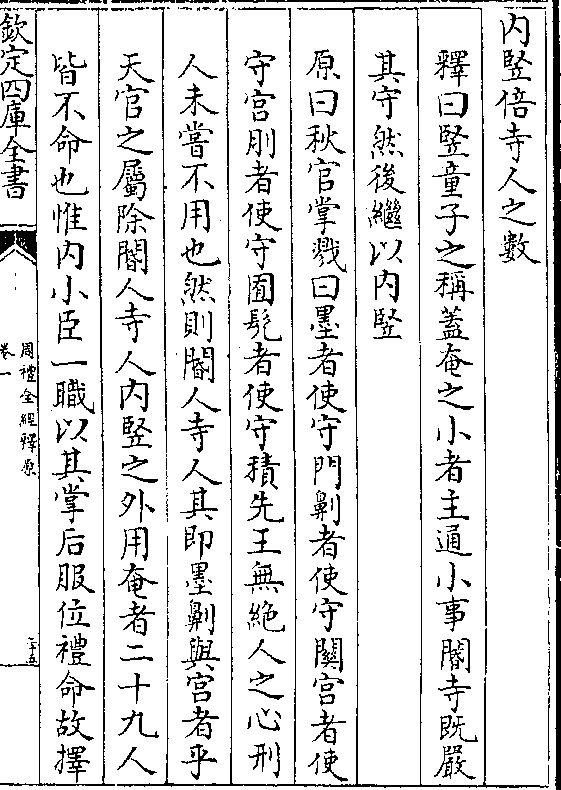 内豎倍寺人之數
釋曰豎童子之稱蓋奄之小者主通小事閽寺既嚴
其守然後繼以内豎
原曰秋官掌戮曰墨者使守門劓者使守關宫者使
守宫刖者使守囿髡者使守積先王無絶人之心刑
人未嘗不用也然則閽人寺人其即墨劓與宫者乎
天官之屬除閽人寺人内豎之外用奄者二十九人
皆不命也惟内小臣一職以其掌后服位禮命故擇
欽定四庫全書
周禮全經釋原
卷一
三十五